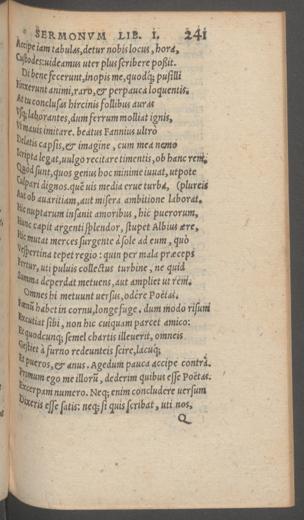 SERMONVM LIB. I. 241
Accipe iam tabulas, detur nobis locus, hora,
Custodes: uideamus uter plus scribere poßit.
Di bene fecerunt, inopis me, quodq́; pusilli
Finxerunt animi, raro, & perpauca loquentis.
At tu conclusas hircinis follibus auras
Vsq́; laborantes, dum ferrum molliat ignis,
Vt mauis imitare. beatus Fannius ultro
Delatis capsis, & imagine, cum mea nemo
Scripta legat, uulgo recitare timentis, ob hanc rem,
Quòd sunt, quos genus hoc minime iuuat, utpote
Culpari dignos. quē uis media erue turba, (plureis
Aut ob auaritiam, aut misera ambitione laborat.
Hic nuptarum insanit amoribus, hic puerorum,
Hunc capit argenti splendor, stupet Albius ære,
Hic mutat merces surgente à sole ad eum, quò
Vespertina tepet regio: quin per mala præceps
Fertur, uti puluis collectus turbine, ne quid
Summa deperdat metuens, aut ampliet ut rem.
Omnes hi metuunt uersus, odêre Poëtas.
Fœnū habet in cornu, longe fuge. dum modo risum
Excutiat sibi, non hic cuiquam parcet amico:
Et quodcunq; semel chartis illeuerit, omneis
Gestiet à furno redeunteis scire, lacuq́;
Et pueros, & anus. Agedum pauca accipe contrà.
Primum ego me illorū, dederim quibus esse Poëtas.
Excerpam numero. Neq; enim concludere uersum
Dixeris esse satis: neq; si quis scribat, uti nos,
Q